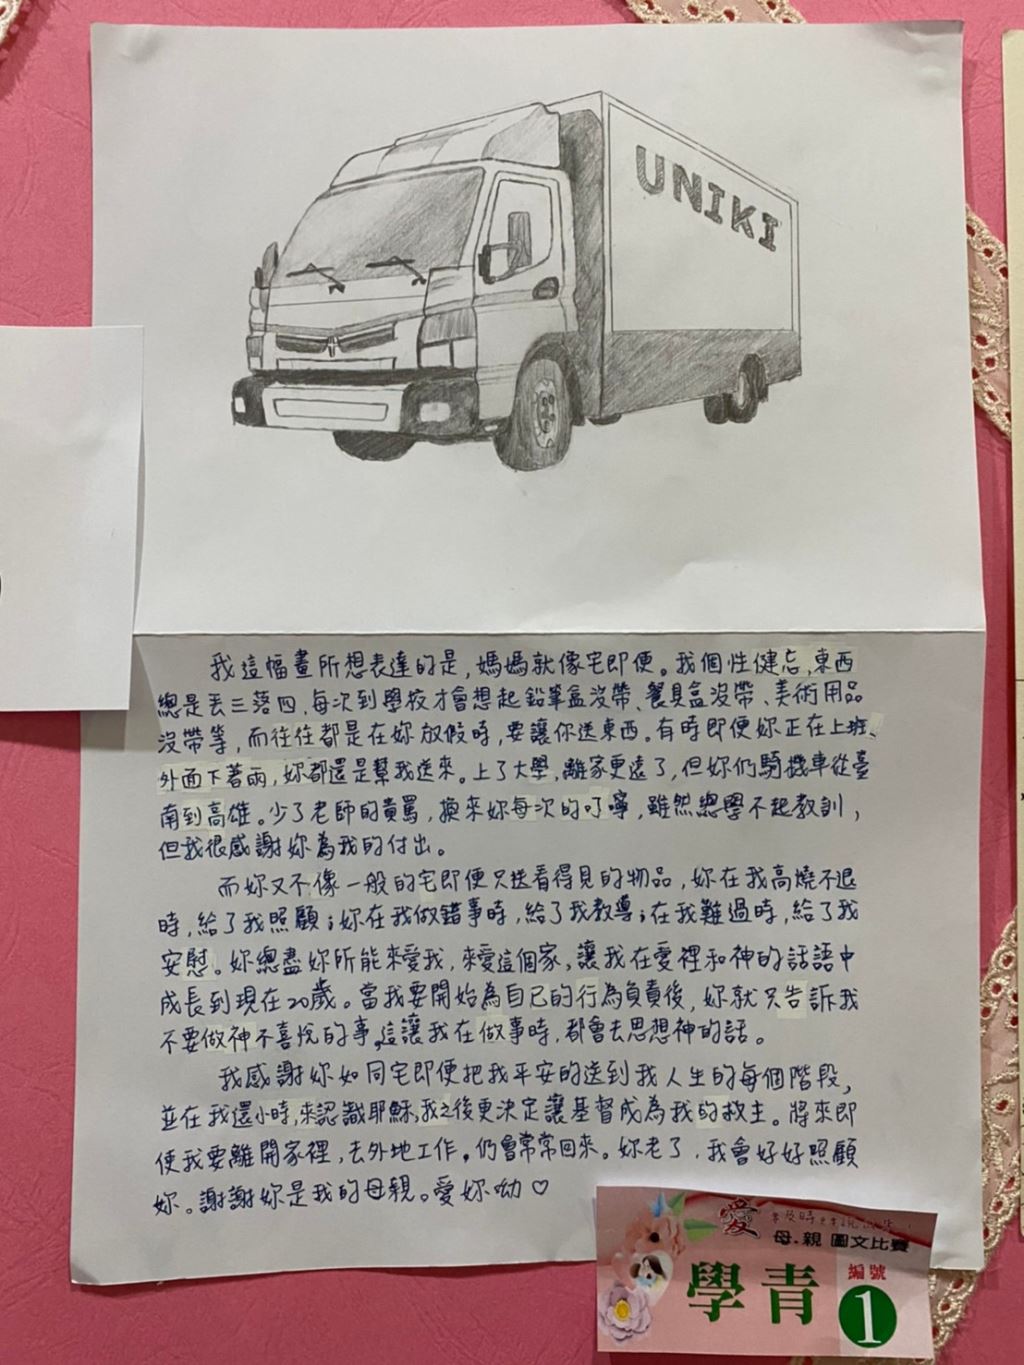 UNIKI
我這幅畫所想表達的是，媽媽就像宅即便。我個性健忘、東西
總是丟三落四、每次到學校才會想起鉛筆盒沒帶、餐具盒沒帶、美術用品
沒帶等，而往往都是在妳放假時，要讓你送東西。有時即便妳正在上班、
外面下著雨，妳都還是幫我送來。上了大學，離家更遠了，但妳仍騎機車從臺
南到高雄。少了老師的責罵，換來妳每次的叮嚀，雖然總學不起教訓，
但我很感謝妳為我的付出。
而妳又不像一般的宅即便只送看得見的物品，妳在我高燒不退
時，給了我照顧；妳在我做錯事時，給了我教導；在我難過時，給了我
安慰。妳總盡妳所能來愛我，來愛這個家，讓我在愛裡和神的話語中
成長到現在20歲。當我要開始為自己的行為負責後，妳就只告訴我
不要做神不喜悅的事，這讓我在做事時，都會去思想神的話。
我感謝妳如同宅即便把我平安的送到我人生的每個階段，
並在我還小時，來認識耶穌，我之後更決定讓基督成為我的救主。將來即
使我要離開家裡，去外地工作，仍會常常回來。妳老了，我會好好照顧
妳。謝謝妳是我的母親。愛妳呦♡
愛
母．親 圖文比賽
學青
編號
1